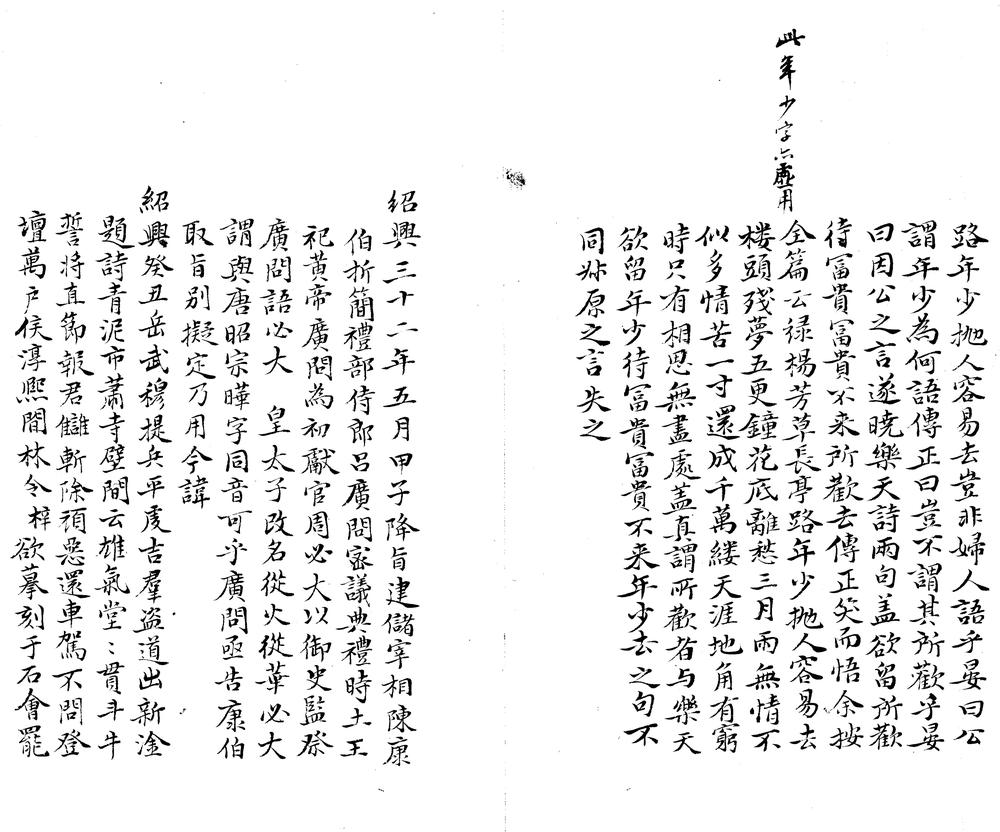 此年少字亦虛用
路年少抛人容易去豈非婦人語乎晏曰公
謂年少為何語傳正曰豈不謂其所歡乎晏
曰因公之言遂曉樂天詩兩句盖欲留所歡
待冨貴冨貴不来所歡去傳正笑而悟余按
全篇云禄楊芳草長亭路年少抛人容易去
楼頭殘夢五更鐘花底離愁三月雨無情不
似多情苦一寸還成千萬縷天涯地角有窮
時只有相思無盡處盖真謂所歡者与樂天
欲留年少待冨貴冨貴不来年少去之句不
同叔原之言失之
紹興三十二年五月甲子降旨建儲宰相陳康
伯折簡禮部侍郎吕廣問宻議典禮時土王
祀黄帝廣問為初獻官周必大以御史監祭
廣問語必大 皇太子改名從火從華必大
謂與唐昭宗曄字同音可乎廣問亟告康伯
取旨别擬定乃用今諱
紹興癸丑岳武穆提兵平虔吉羣盗道出新淦
題詩青泥市蕭寺壁間云雄氣堂〻貫斗牛
誓將直節報君讎斬除頑惡還車駕不問登
壇萬戶侯淳熈間林令梓欲摹刻于石會罷